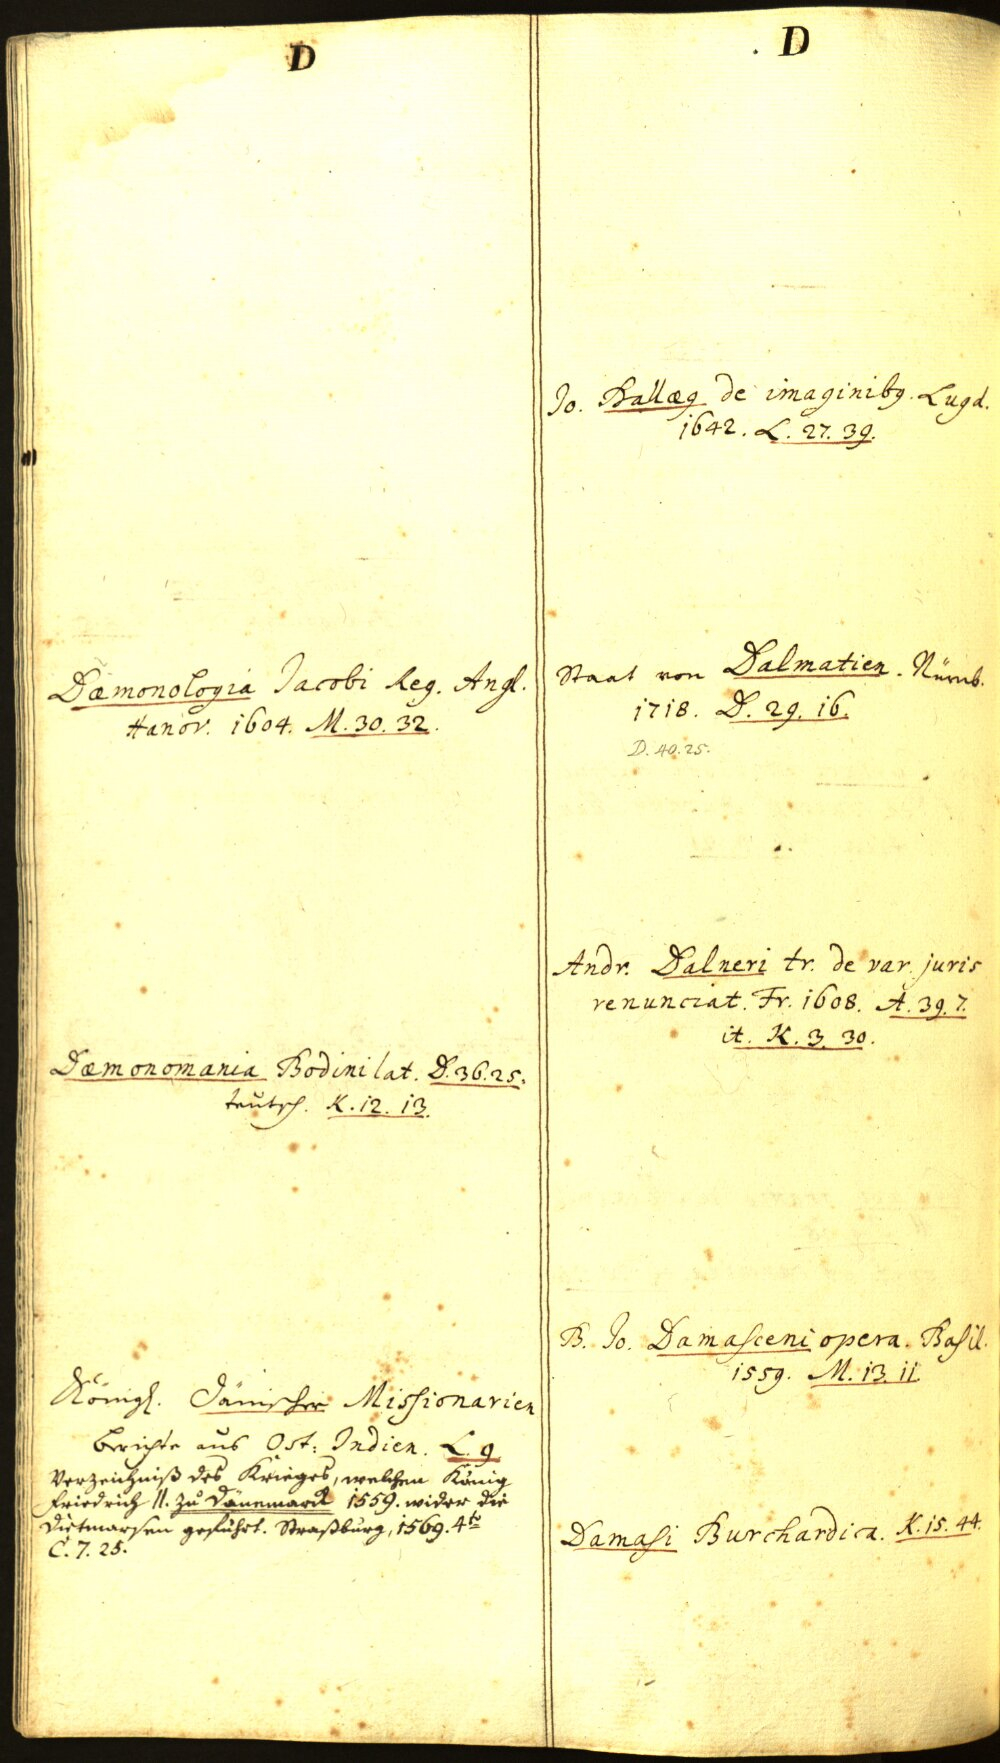 D
Dæmonologia Jacobi Reg. Angl.
Hanov. 1604. M. 30. 32.
Dæmonomania Bodini lat. D. 36. 25.
teutsch. K. 12. 13.
Königl. Dänischer Missionarien
berichte aus Ost: Indien. L. 9
Verzeichniß des Krieges, welchen König
Friedrich II. zu Dänemarck 1559. wider die
Dietmarsen geführt. Straßburg, 1569. 4to
C. 7. 25.
D
Jo. Dallæg de imaginibg. Lugd.
1642. L. 27. 39.
Staat von Dalmatien. Nürnb.
1718. D. 29. 16.
D. 40. 25.
Andr. Dalneri tr. de var. juris
renunciat. Fr. 1608. A. 39. 7.
it. K. 3. 30.
B. Jo. Damasceni opera. Basil.
1559. M. 13. 11.
Damasi Burchardica. K. 15. 44.